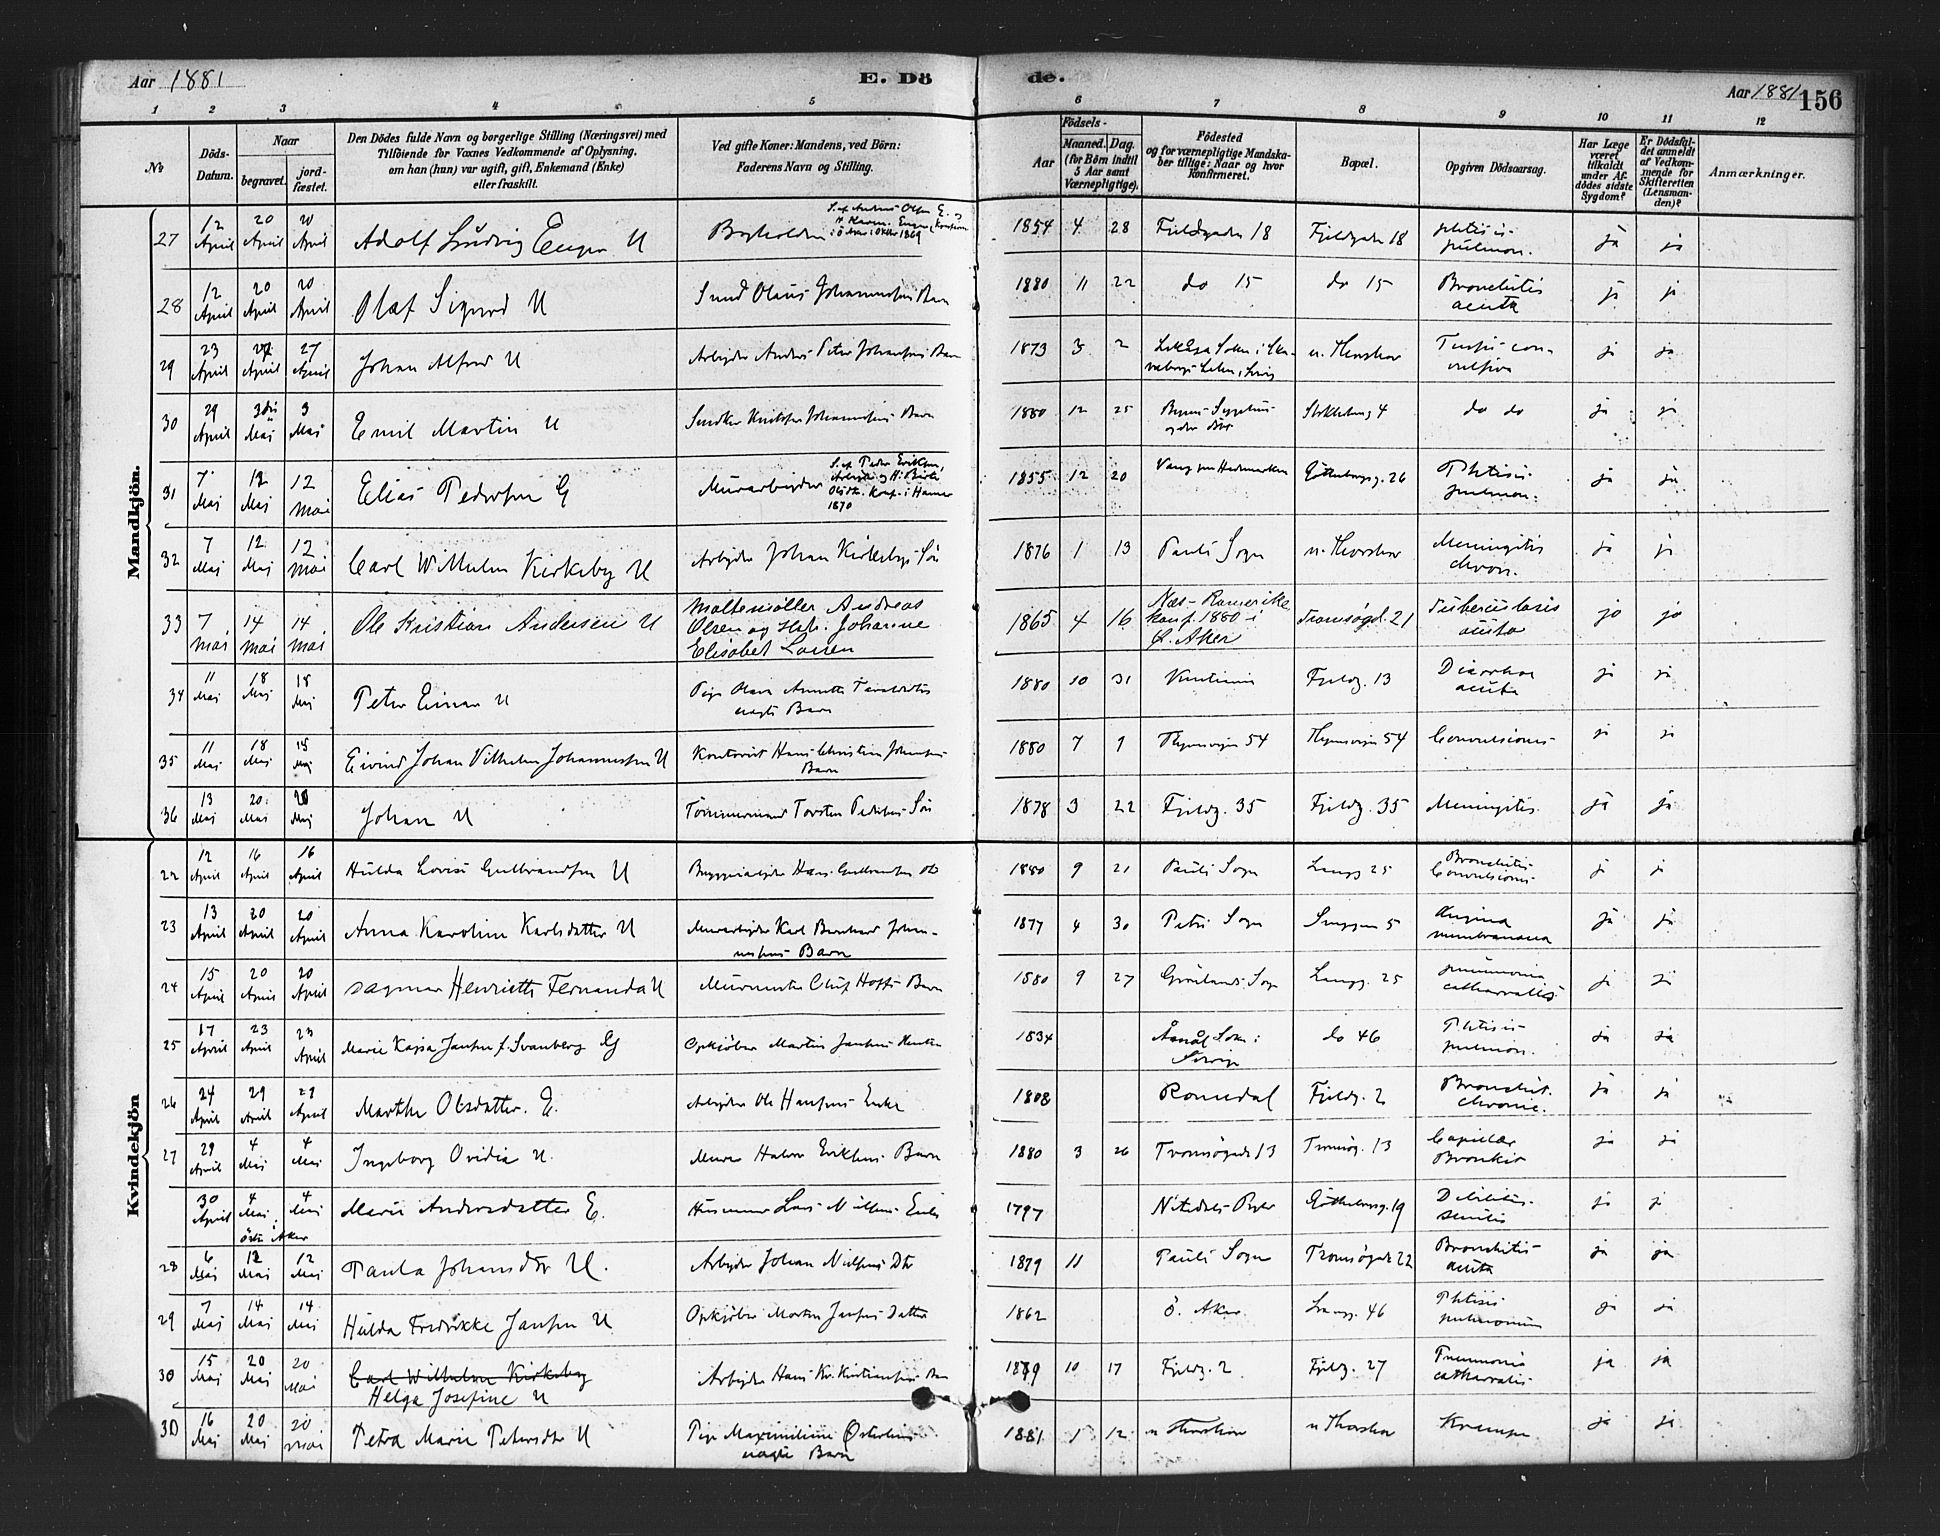 Aar 1881
E. Dö
de.
Aar 1881 156
1 2 3 4 5 6 7 8 9 10 11 12
No
Döds-Datum.
Naar
begravet.
jordfæstet.
Den Dödes fulde Navn og borgerlige Stilling (Næringsvei) med
Tilföiende for Voxnes Vedkommende af Oplysning,
om han (hun) var ugift, gift, Enkemand (Enke)
eller fraskilt.
Ved gifte Koner: Mandens, ved Börn:
Faderens Navn og Stilling.
Födsels-
Aar
Maaned. Dag.
(for Börn indtil
5 Aar samt
Værnepligtige).
Födested
og for værnepligtige Mandskaber tillige: Naar og hvor
Konfirmeret.
Bopæl.
Opgiven Dödsaarsag.
Har Læge
været
tilkaldt
under Afdödes sidste
Sygdom?
Er Dödsfaldet anmeldt
af Vedkommende for
Skifteretten
(Lensmanden)?
Anmærkninger.
Mandkjön.
27 12 April 20 April 20 April Adolf Ludvig Enger U 1854 4 28 Fjeldgaden 18 Fjeldgaden 18 phtisis pulmon. ja ja
28 12 April 20 April 20 April Olaf Sigurd U Smed Olaus Johannesens Barn 1880 11 22 do 15 do 15 Bronchitis acuta ja ja
29 23 April 27 April 27 April Johan Alfred U Arbejder Anders Peter Johansens Barn 1873 3 2 n. Thorshov Tussis convulsiva ja ja
30 29 April 3 Maj 3 Maj Emil Martin U Johannesens Barn 1880 12 25 4 do do ja ja
31 7 Maj 12 Maj 12 Mai Elias Pedersen G Murarbejder 1855 12 20 Vang paa Hedemarken Götheborgg. 26 Phtisis pulmon. ja ja
32 7 Maj 12 Maj 12 Mai Carl Wilhelm Kirkeby U Arbejder Johan Kirkebys Sön 1876 1 13 Pauls Sogn n. Thorshov Meningitis chron. ja ja
33 7 Mai 14 Mai 14 Mai Ole Kristian Andersen U Maltemöller Andreas Olsen og Johanne Elisabet Larsen 1865 4 16 Næs - Romerike konf. 1880 i Ö. Aker Tromsögd. 21 Tuberculosis acuta ja ja
34 11 Maj 18 Maj 18 Maj Peter Einar U Pige Annette uægte Barn 1880 10 31 Fjeldg. 13 Diarrhoe acuta ja ja
35 11 Maj 18 Maj 18 Maj Eivind Johan Vilhelm Johannessen U Kontorist Hans Christian Johansens Barn 1880 7 9 54 54 Convulsiones ja ja
36 13 Maj 20 Maj 20 Maj Johan U Tömmermand Torsten Sön 1878 3 22 Fjeldg. 35 Fjeldg. 35 Meningitis ja ja
Kvindekjön
22 12 April 16 April 16 April Hulda Lovise Gulbrandsen U Hans Gulbrandsen 1880 9 21 Pauls Sogn Langg 25 Bronchitis Convulsiones ja ja
23 13 April 20 April 20 April Anna Karoline Karlsdatter U Murarbejder Karl Bernhard Johannesens Barn 1877 4 30 Petri Sogn 5 Angina membranacea ja ja
24 15 April 20 April 20 April Dagmar Henriette Fernanda U Murmester Hoffs Barn 1880 9 27 Grönlands Sogn Langg. 25 pneumonia catharralis ja ja
25 17 April 23 April 23 April Marie Kajsa Jansen f. Svanberg G Opkjöber Martin Jansens Hustru 1834 Åmål Sokn i Sverige do 46 Phtisis pulmon. ja ja
26 24 April 29 April 29 April Marthe Olsdatter. E. Arbejder Ole Hansens Enke 1808 Romedal Fjeldg. 2 Bronchit. chronic. ja ja
27 29 April 4 Maj 4 Maj Ingeborg Ovidia U. Murer Halvor Eriksens Barn 1880 3 26 Tromsögade 13 Tromsög. 13 Capillær Bronkit ja ja
30 April 4 Maj 4 Maj östre Aker Marie Andersdatter E. Husmand Lars Nilsens Enke 1797 Götheborgg. 19 Debilitas senilis ja ja
28 6 Maj 12 Maj 12 Maj Paula Johansdtr U. Arbejder Johan Nielsens Dtr 1879 11 Pauls Sogn Tromsögade 22 Bronchitis acuta ja ja
29 7 Maj 14 Maj 14 Maj Hulda Fredrikke Jansen U Opkjöber Morten Jansens Datter 1862 Ö. Aker Langg. 46 Phtisis pulmonum ja ja
30 15 Maj 20 Maj 20 Mai Carl Wilhelm Kirkeby
Helga Josefine U Arbejder Hans Kr. Kristiansens Barn 1879 10 17 Fjeldg. 2 Fjeldg. 27 Pneumonia catharralis ja ja
30 16 Maj 20 Maj 20 Mai Petra Marie Petersdtr U Pige Maximiliane uægte Barn 1881 1 12 n Thorshov n Thorshov Krampe ja ja